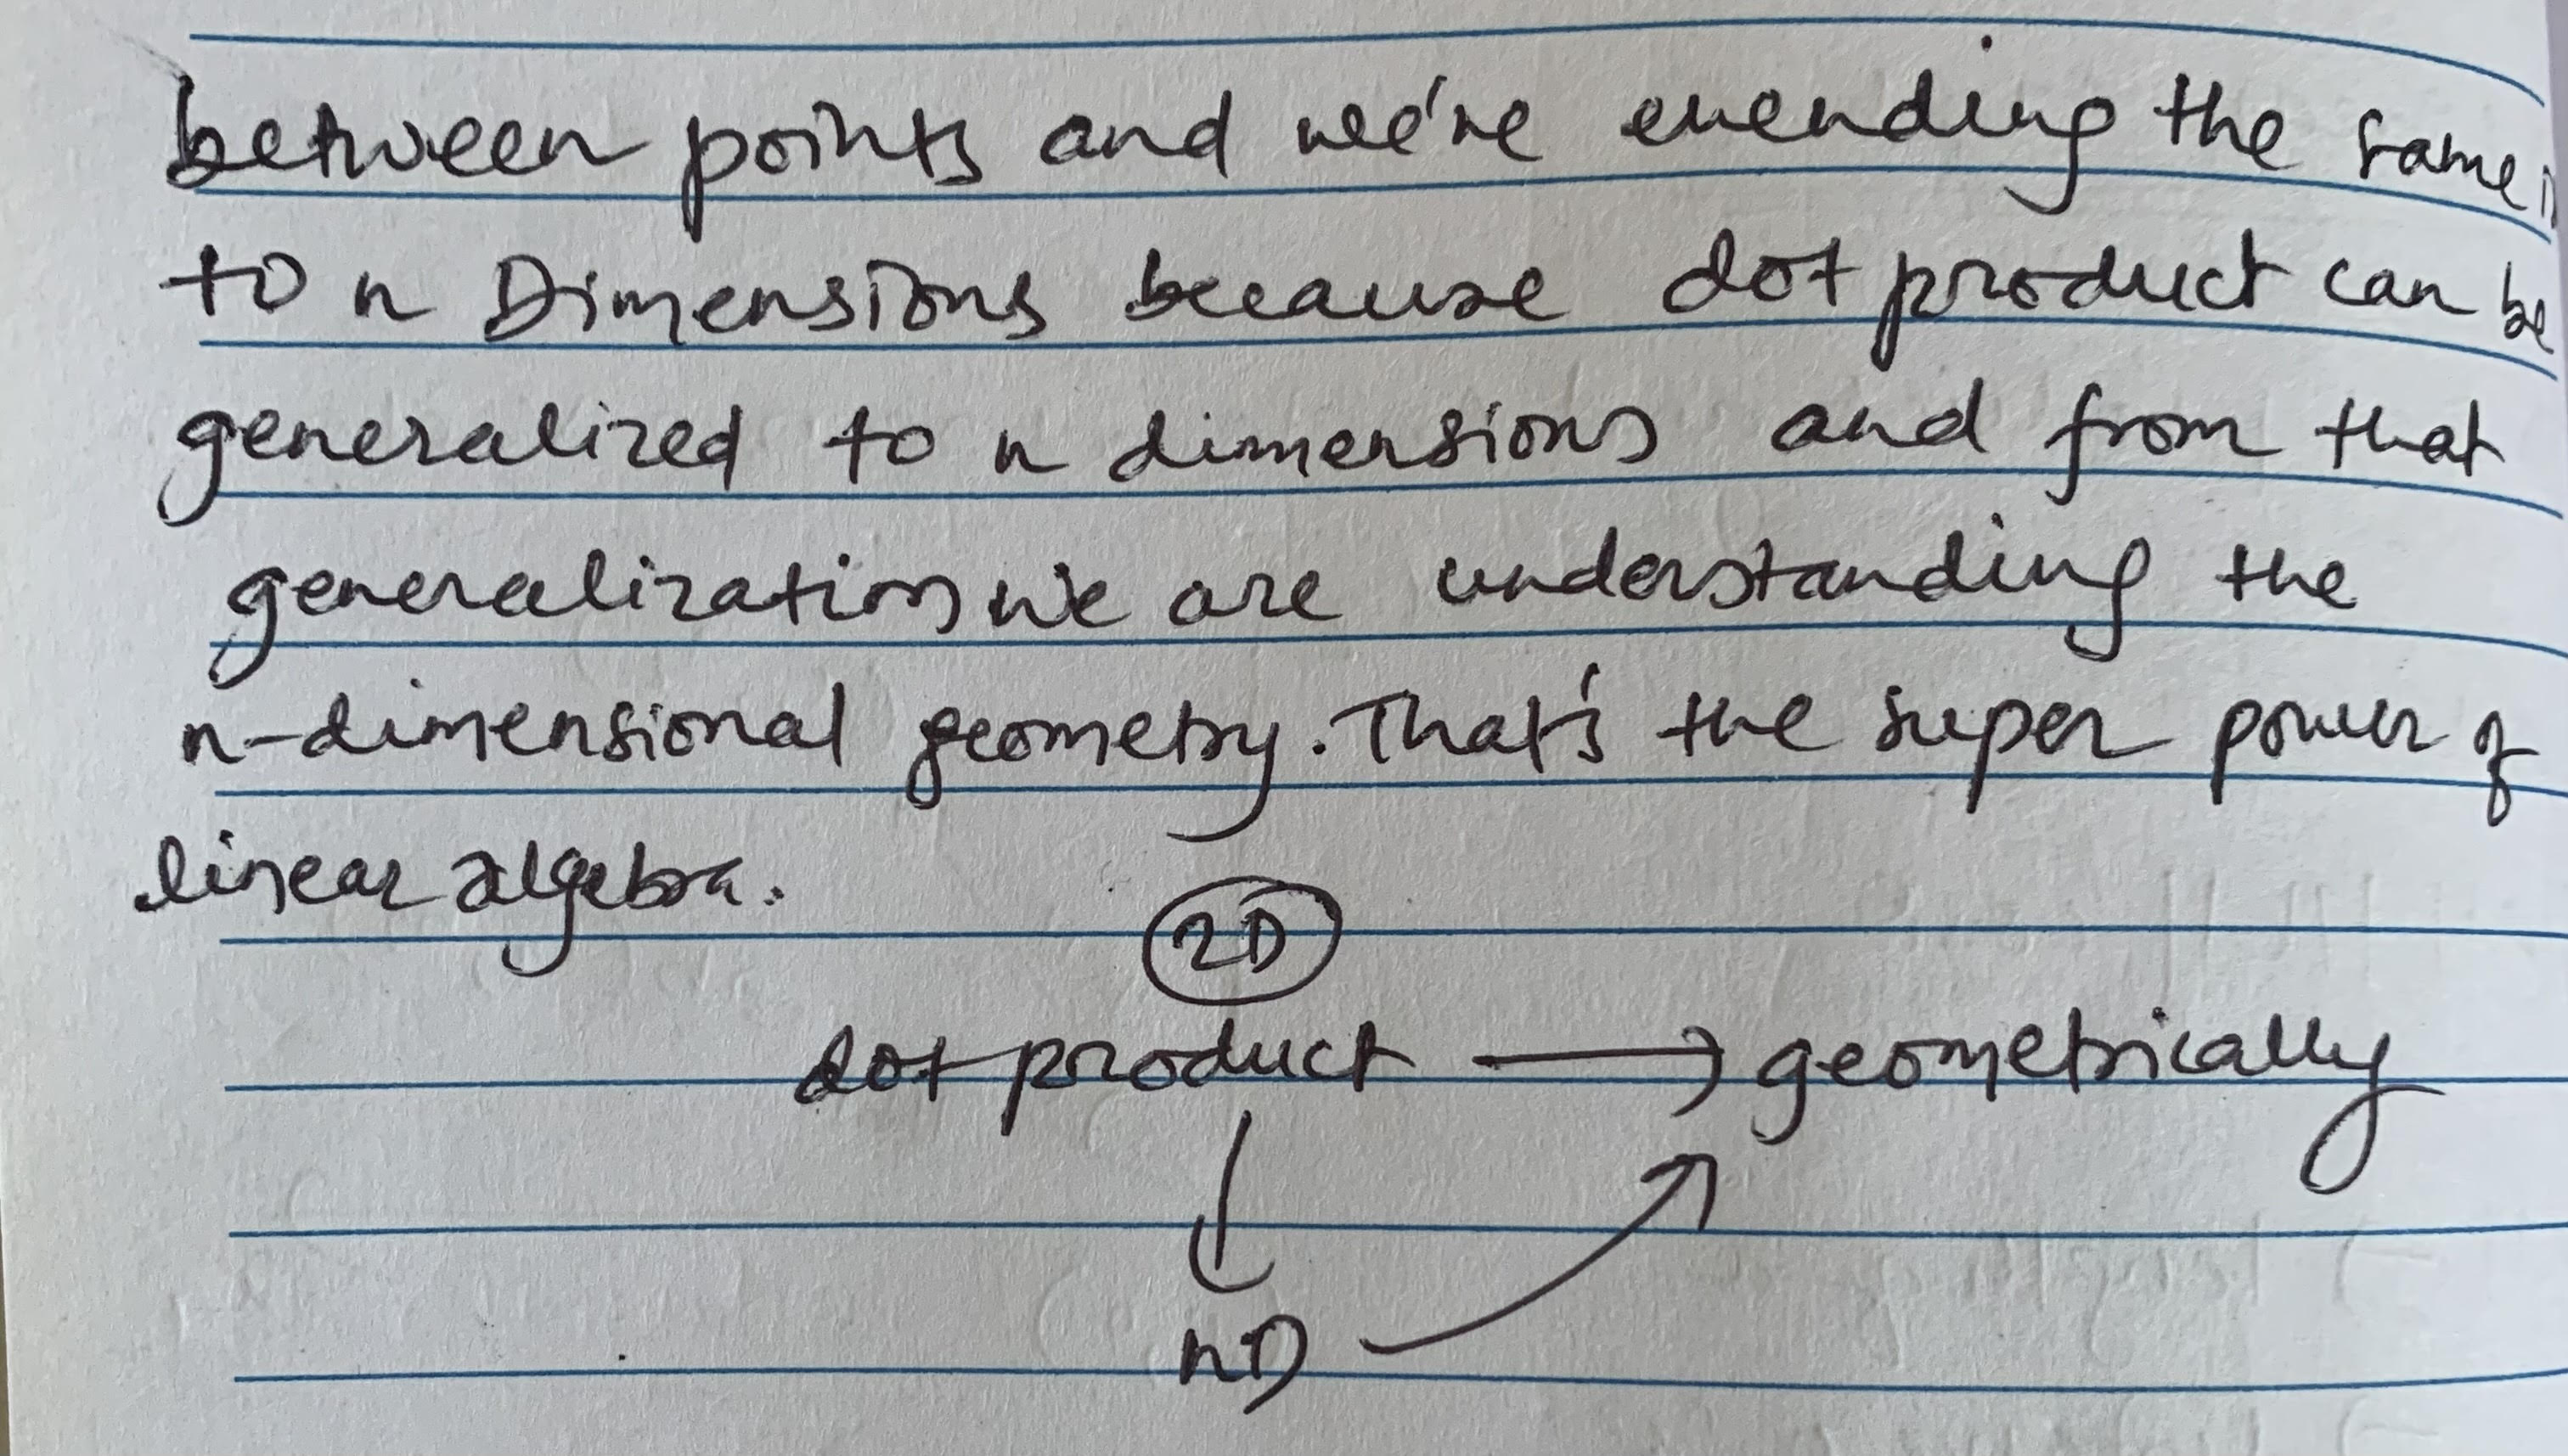 between points and we're exending the same
to n Dimensions because dot product can be
generalized to n dimensions and from that
generalization we are understanding the
n-dimensional geometry. That's the super power of
linear algebra.
2D
dot product → geometrically
nD